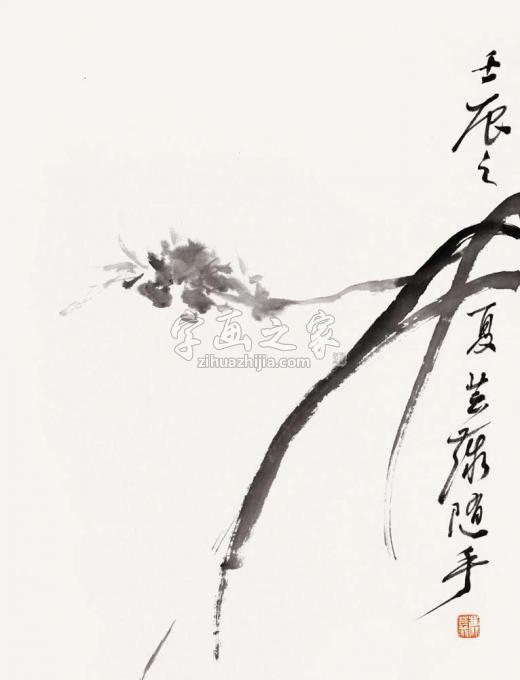 壬辰之
夏芸薇随手
字画之家
zihuazhijia.com